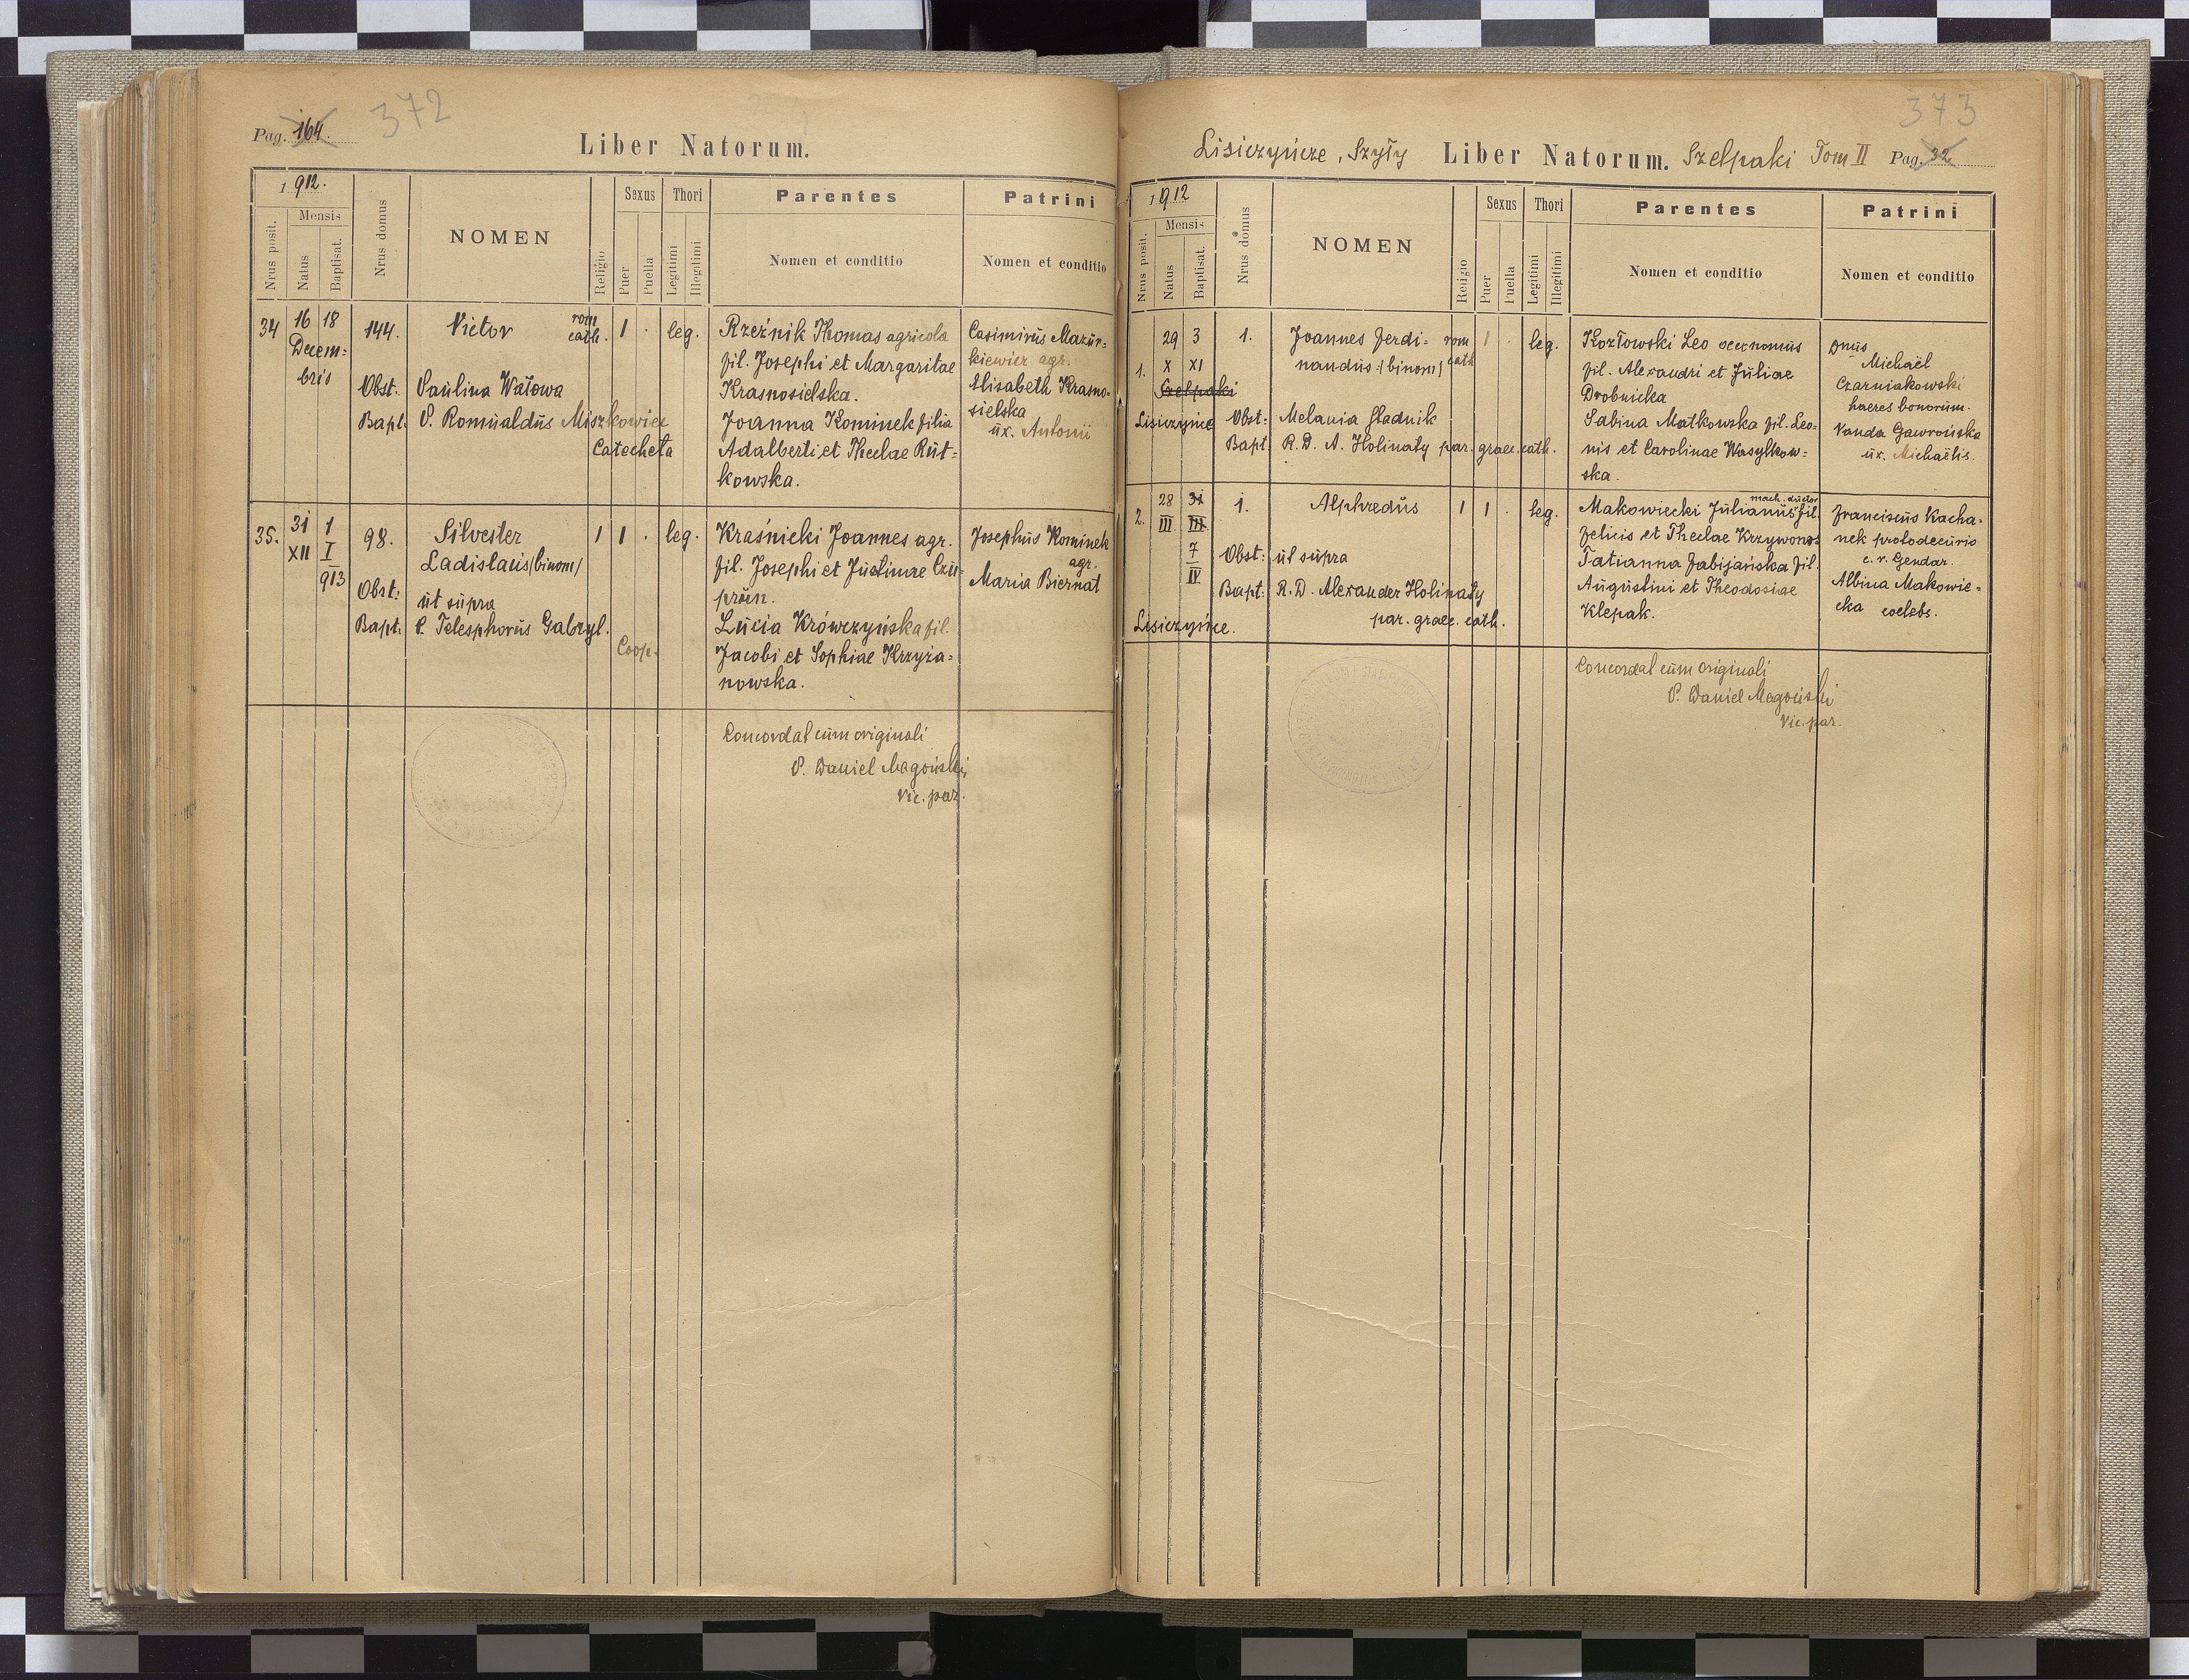 Pag. 164. 372
Liber Natorum.
1912.
Nrus posit.
Mensis
Natus
Baptisat.
Nrus domus
NOMEN
Religio
Sexus
Puer
Puella
Thori
Legitimi
Illegitimi
Parentes
Nomen et conditio
Patrini
Nomen et conditio
34 16 18 144. Victor rom. cath. 1 . leg.
Decem-
bris
Obst. Paulina Watowa
Bapt. P. Romualdus Miszkowicz
Catecheta
Rzeźnik Thomas agricola
fil. Josephi et Margaritae
Krasnosielska.
Joanna Kominek filia
Adalberti et Theclae Rut=
kowska.
Casimirus Mazur-
kiewicz agr.
Elisabeth Krasno-
sielska
ux. Antonii
35. 31 1 98. Silvester 1 1 . leg.
XII I
913
Ladislaus /binom/
Obst: ut supra
Bapt: P. Telesphorus Gabryl.
Coop.
Kraśnicki Joannes agr.
fil. Josephi et Justinae Czu-
pröen.
Lucia Krówczyńska fil.
Jacobi et Sophiae Krzyża=
nowska.
Josephus Kominek
agr.
Maria Biernat
Concordat cum originali
P. Daniel Magoński
Vic. par.
373
Lisiczyńcze, Szyły Liber Natorum. Szelpaki Tom II Pag. 32
1912
Nrus posit.
Mensis
Natus
Baptisat.
Nrus domus
NOMEN
Religio
Sexus
Puer
Puella
Thori
Legitimi
Illegitimi
Parentes
Nomen et conditio
Patrini
Nomen et conditio
1. 29 3 1. Joannes Ferdi= rom 1 . leg.
X XI nandus /:binom/ cath
Szelpaki
Lisiczyńce Obst: Melania Hladnik
Bapt. R. D. A. Holinaty par. graec. cath.
Kozłowski Leo oeconomus
fil. Alexandri et Juliae
Drobnicka
Sabina Matkowska fil. Leo=
nis et Carolinae Wasylkow=
ska.
Dnus
Michaël
Czarniakowski
haeres bonorum.
Vanda Gawrońska
ux. Michaëlis.
2. 28 31 1. Alphredus 1 1 . leg.
III III
7
IV
Obst: ut supra
Bapt: R. D. Alexander Holinaty
par. graec. cath.
Lisiczyńce.
mach. ductor
Makowiecki Julianus fil.
Felicis et Theclae Krzywonos
Tatianna Fabijańska fil.
Augustini et Theodosiae
Klepak.
Franciscus Kacha-
nek protodecurio
c. r. Gendar.
Albina Makowie-
cka coelebs.
Concordat cum originali
P. Daniel Magoński
Vic. par.